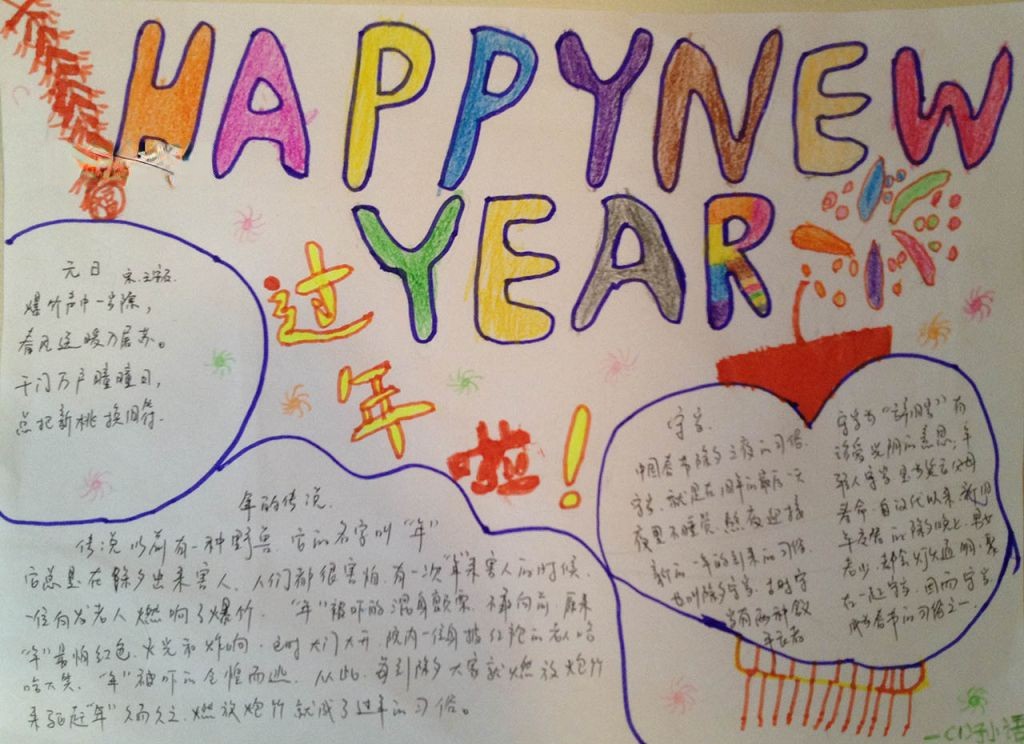 HAPPY NEW
YEAR
福
过
年
啦!
元日 宋.王安石
爆竹声中一岁除,
春风送暖入屠苏。
千门万户瞳瞳日,
总把新桃换旧符.
年的传说.
传说以前有一种野兽 它的名字叫“年”
它总是在除夕出来害人.人们都很害怕.有一次“年”来害人的时候.
一位白发老人燃响了爆竹.“年”被吓的混身颤栗.不敢向前.原来
“年”最怕红色.火光和炸响.这时大门大开.院内一位身披红袍的老人哈
哈大笑.“年”被吓的仓惶而逃.从此.每到除夕大家就燃放炮竹
来驱赶“年”久而久之.燃放炮竹就成了过年的习俗。
守岁.
中国春节除夕之夜的习俗.
守岁.就是在旧年的最后一天
夜里不睡觉.熬夜迎接
新的一年的到来的习俗.
也叫除夕守岁.古时守
岁有两种含义
年长者
守岁为“辞旧岁”有
珍爱光阴的意思.年
轻人守岁是为延长父母
寿命.自汉代以来.新旧
年交替的除夕晚上.男女
老少.都会灯火通明.聚
在一起守岁.因而守岁
成为春节的习俗之一.
一(1)孙语